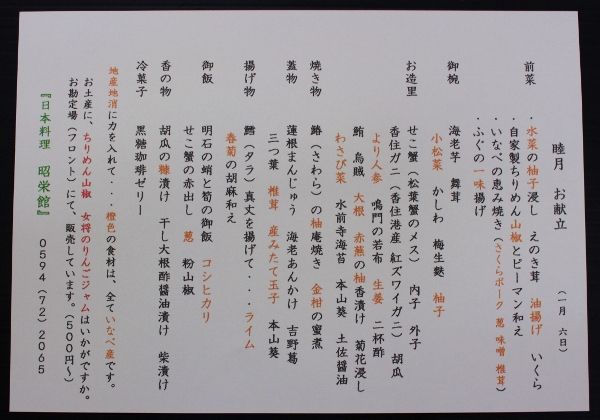 睦月 お献立
(一月 六日)
前菜 ・水菜の柚子浸し えのき茸 油揚げ いくら
・自家製ちりめん山椒とピーマン和え
・いなべの恵み焼き(さくらポーク 葱 味噌 椎茸)
・ふぐの一味揚げ
御椀 海老芋 舞茸
小松菜 かしわ 梅生麩 柚子
お造里 せこ蟹(松葉蟹のメス) 内子 外子
香住ガニ(香住港産 紅ズワイガニ) 胡瓜
より人参 鳴門の若布 生姜 二杯酢
鮪 烏賊 大根 赤蕪の柚香漬け 菊花浸し
わさび菜 水前寺海苔 本山葵 土佐醤油
焼き物 鰆(さわら)の柚庵焼き 金柑の蜜煮
蓋物 蓮根まんじゅう 海老あんかけ 吉野葛
三つ葉 椎茸 産みたて玉子 本山葵
揚げ物 鱈(タラ)真丈を揚げて・・・ライム
春菊の胡麻和え
御飯 明石の蛸と筍の御飯 コシヒカリ
せこ蟹の赤出し 葱 粉山椒
香の物 胡瓜の糠漬け 干し大根酢醤油漬け 柴漬け
冷菓子 黒糖珈琲ゼリー
地産地消に力を入れて・・・橙色の食材は、全ていなべ産です。
お土産に、ちりめん山椒 女将のりんごジャムはいかがですか。
お勘定場(フロント)にて、販売しています。(500円~)
『日本料理 昭栄館』 0594(72)2065